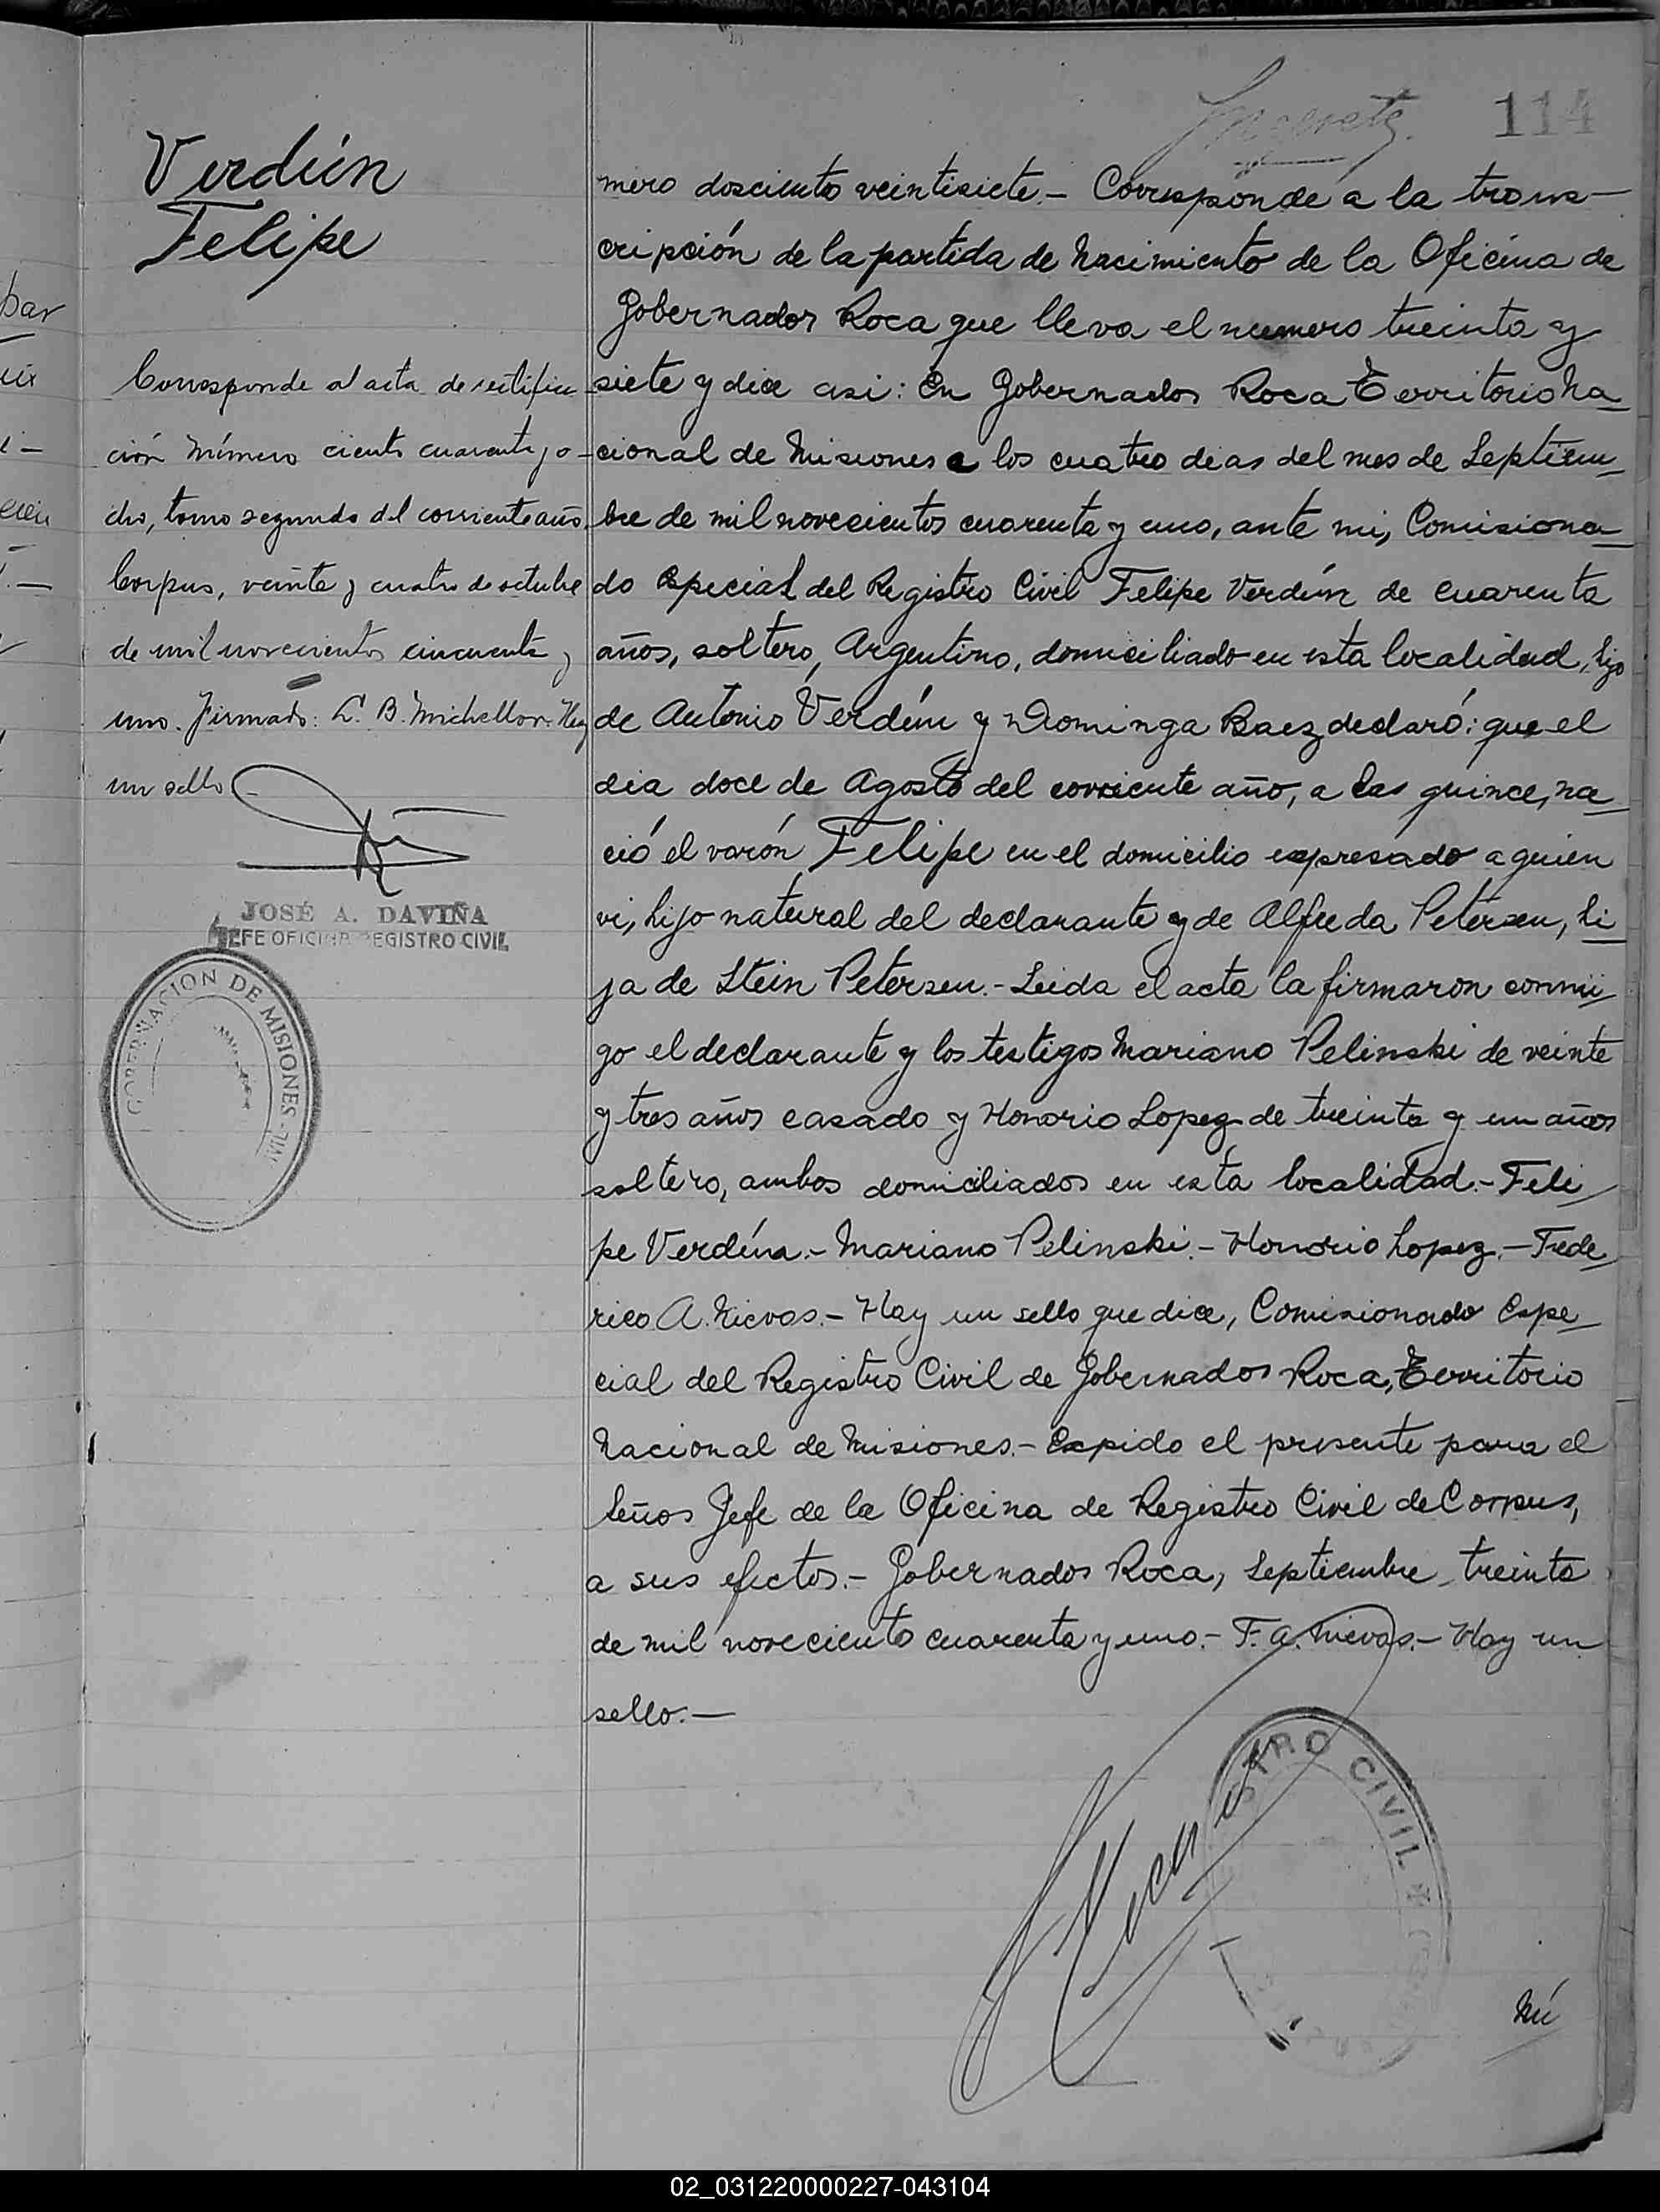 114
Verdún
Felipe
Corresponde al acta de rectifica
ción número ciento cuarenta y o-
cho, tomo segundo del corriente año.
Corpus, veinte y cuatro de octubre
de mil novecientos cincuenta y
uno. Firmado: L. B. Michellon. Hay
un sello
JOSÉ A. DAVIÑA
JEFE OFICINA REGISTRO CIVIL
GOBERNACION DE MISIONES
mero doscientos veintisiete.- Corresponde a la trans-
cripción de la partida de Nacimiento de la Oficina de
Gobernador Roca que lleva el numero treinta y
siete y dice asi: En Gobernador Roca Territorio Na
cional de Misiones a los cuatro dias del mes de Septiem
bre de mil novecientos cuarenta y uno, ante mi, Comisiona
do Especial del Registro Civil Felipe Verdún de cuarenta
años, soltero, Argentino, domiciliado en esta localidad, hijo
de Antonio Verdún y Dominga Baez declaró: que el
dia doce de Agosto del corriente año, a las quince, na
ció el varón Felipe en el domicilio expresado a quien
vi, hijo natural del declarante y de Alfreda Petersen, hi
ja de Stein Petersen.- Leida el acta la firmaron conmi
go el declarante y los testigos Mariano Pelinski de veinte
y tres años casado y Honorio Lopez de treinta y un años
soltero, ambos domiciliados en esta localidad.- Feli
pe Verdún.- Mariano Pelinski.- Honorio Lopez.- Fede
rico A. Nievas.- Hay un sello que dice, Comisionado Espe
cial del Registro Civil de Gobernador Roca, Territorio
Nacional de Misiones.- Expido el presente para el
Señor Jefe de la Oficina de Registro Civil de Corpus,
a sus efectos.- Gobernador Roca, Septiembre treinta
de mil novecientos cuarenta y uno.- F. A. Nievas.- Hay un
sello.-
STRO CIVIL
Nú
02_031220000227-043104